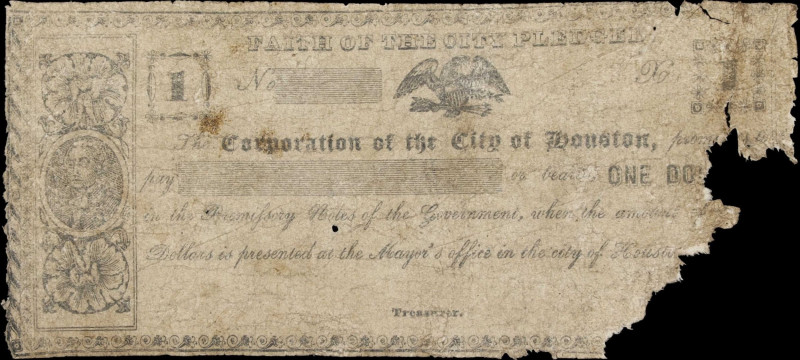 FAITH OF THE CITY PLEDGED
1 No No
The Corporation of the City of Houston,
pay or bearer ONE DO
in the Promissory Notes of the Government, when the amount
Dollars is presented at the Mayor's office in the city of Houst
Treasurer.